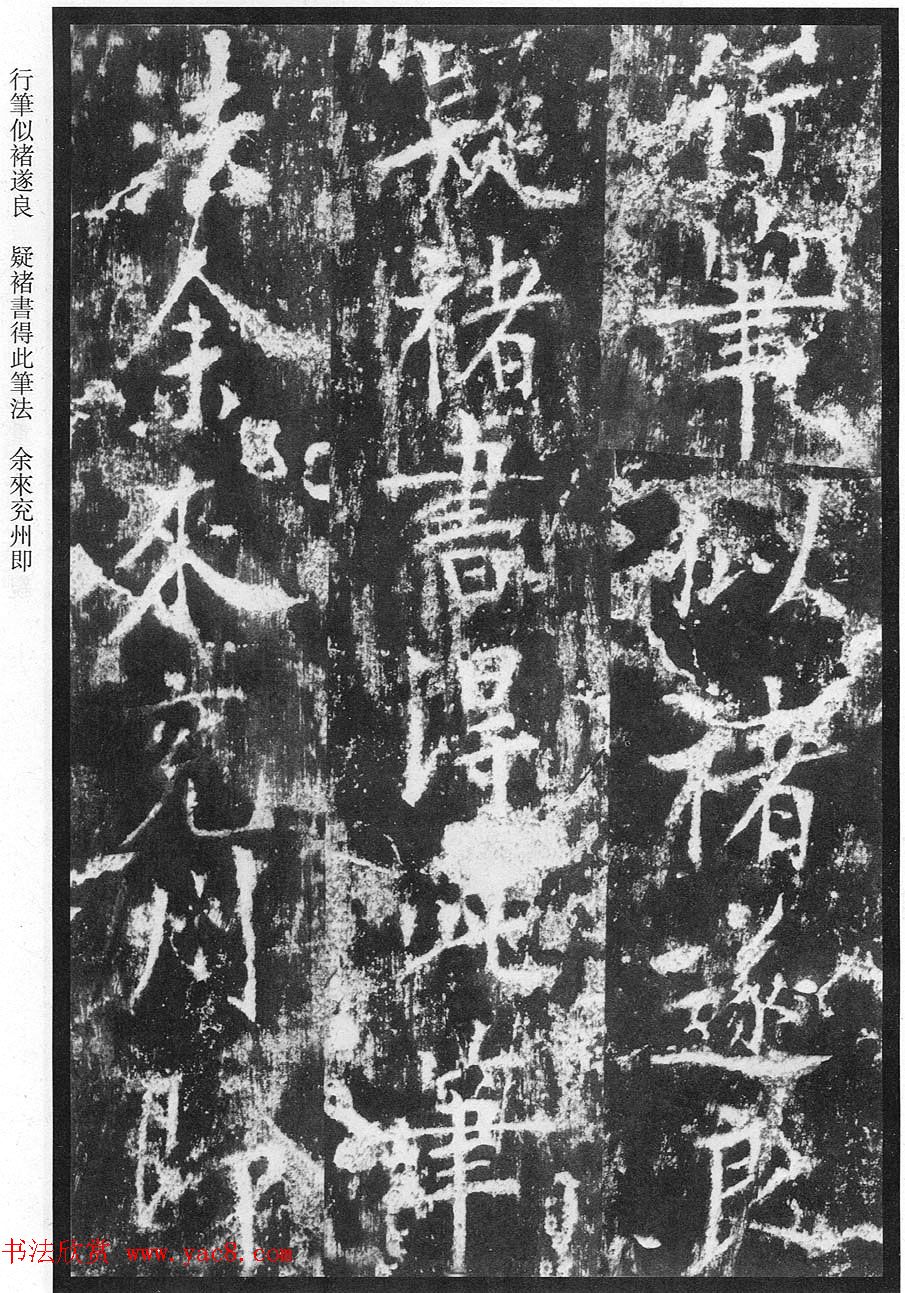 行筆似褚遂良
疑褚書得此筆
法余來兗州即
行筆似褚遂良 疑褚書得此筆法 余來兗州即
书法欣赏 www.yac8.com